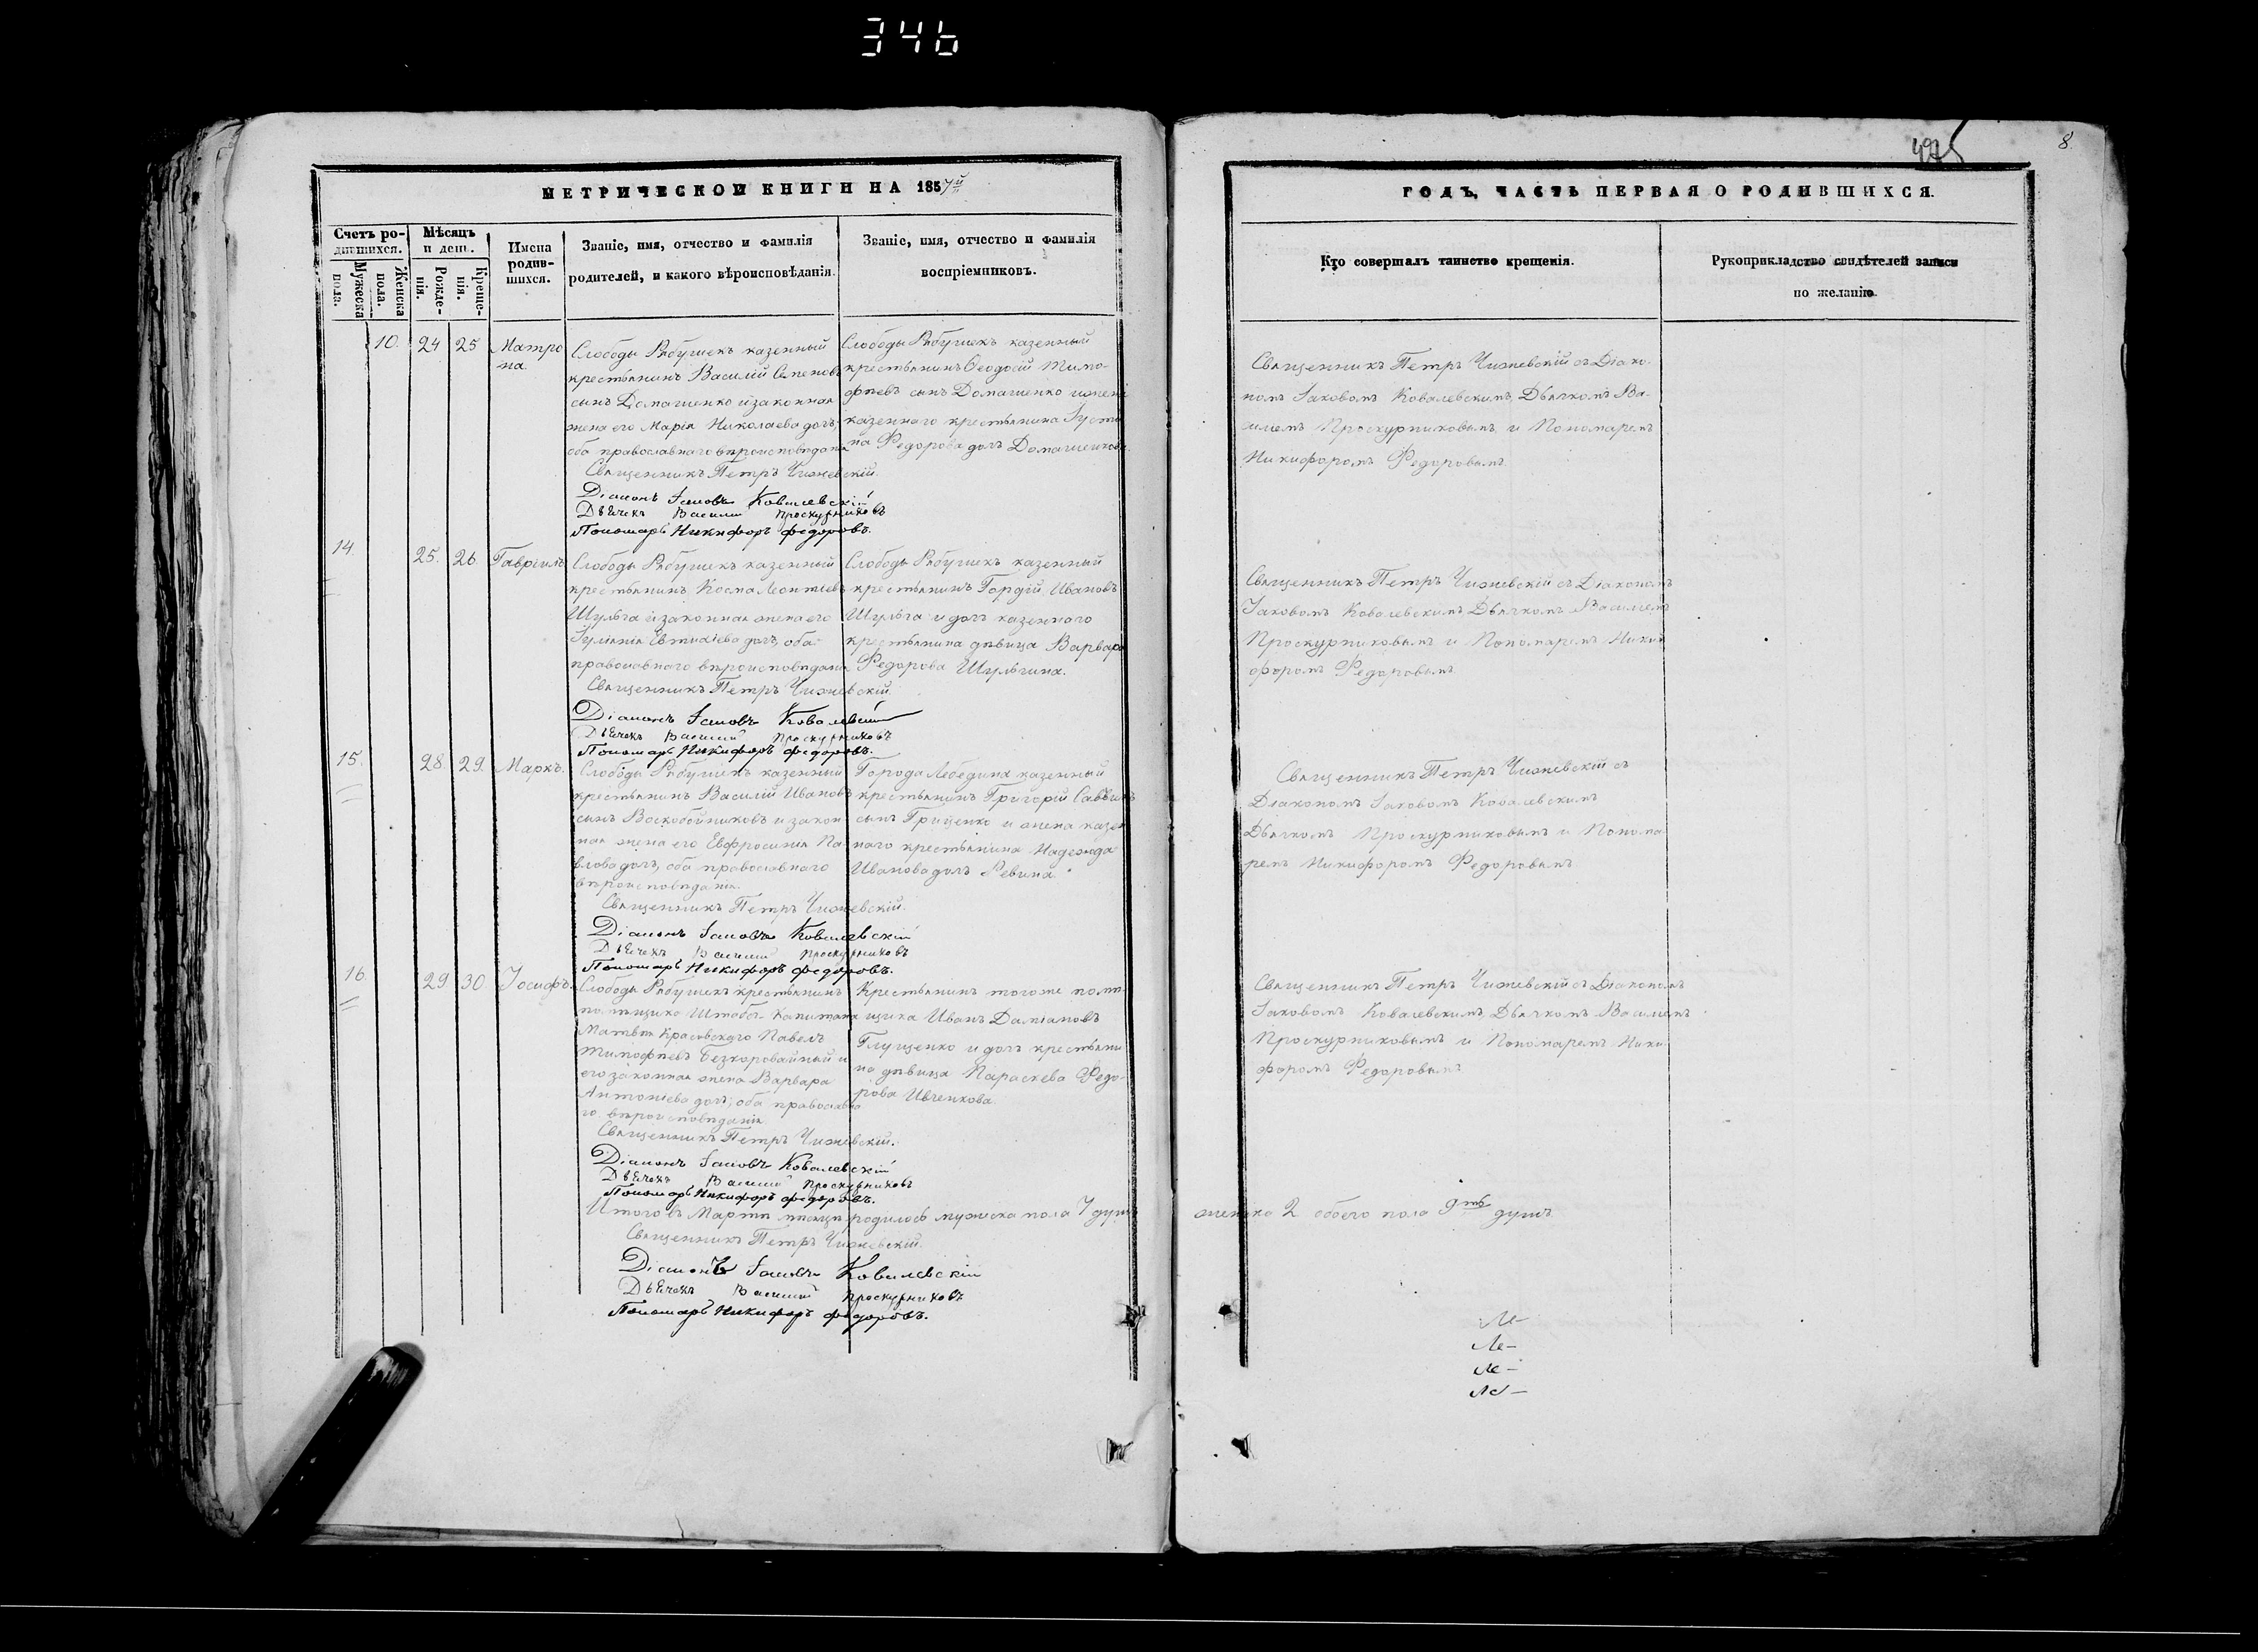 346
475
8.
МЕТРИЧЕСКОЙ КНИГИ НА 1857й
Счетъ ро-
дившихся.
Мужеска
пола.
Женска
пола.
Мѣсяцъ
и день.
Рожде-
нія.
Креще-
нія.
Имена
родив-
шихся.
Званіе, имя, отчество и фамилія
родителей, и какого вѣроисповѣданія.
Званіе, имя, отчество и фамилія
воспріемниковъ.
10. 24 25 Матро
на.
Слободы Рябушекъ казенный
крестьянинъ Василій Семеновъ
сынъ Домашенко и законная
жена его Марія Николаева дочь,
оба православнаго вѣроисповѣданія
Священникъ Петръ Чижевскій.
Діаконъ Іаковъ Ковалевскій
Дьячекъ Василій Проскурниковъ
Пономарь Никифоръ Федоровъ.
Слободы Рябушекъ казенный
крестьянинъ Феодосій Тимо-
феевъ сынъ Домашенко и жена
казеннаго крестьянина Іусти
на Федорова дочь Домашенкова.
14. 25. 26. Гавріилъ
Слободы Рябушекъ казенный
крестьянинъ Косма Леонтіевъ
Шульга и законная жена его
Іуліанія Евтихіева дочь, оба
православнаго вѣроисповѣданія
Священникъ Петръ Чижевскій.
Діаконъ Іаковъ Ковалевскій
Дьячекъ Василій Проскурниковъ
Пономарь Никифоръ Федоровъ.
Слободы Рябушекъ казенный
крестьянинъ Гордій Ивановъ
Шульга и дочь казенного
крестьянина дѣвица Варвара
Федорова Шульгина.
15. 28. 29. Маркъ.
Слободы Рябушекъ казенный
крестьянинъ Василій Ивановъ
сынъ Воскобойниковъ и закон
ная жена его Евфросинія Па-
влова дочь, оба православнаго
вѣроисповѣданія.
Священникъ Петръ Чижевскій.
Діаконъ Іаковъ Ковалевскій
Дьячекъ Василій Проскурниковъ
Пономарь Никифоръ Федоровъ.
Города Лебедина казенный
крестьянинъ Григорій Саввинъ
сынъ Гриценко и жена казен
наго крестьянина Надежда
Иванова дочь Ревина.
16 29 30 Іосифъ.
Слободы Рябушекъ крестьянинъ
помѣщика Штабсъ-Капитана
Матвѣя Красовскаго Павелъ
Тимофеевъ Безкоровайный и
его законная жена Варвара
Антоніева дочь, оба православна
го вѣроисповѣданія
Священникъ Петръ Чижевскій.
Діаконъ Іаковъ Ковалевскій
Дьячекъ Василій Проскурниковъ
Пономарь Никифоръ Федоровъ.
Крестьянинъ тогоже помѣ-
щика Иванъ Даміановъ
Глущенко и дочь крестьяни
на дѣвица Параскева Федо-
рова Ивченкова.
Итого въ Мартѣ мѣсяцѣ родилось мужеска пола 7 душъ
женска 2 обоего пола 9ть душъ
Священникъ Петръ Чижевскій.
Діаконъ Іаковъ Ковалевскій
Дьячекъ Василій Проскурниковъ
Пономарь Никифоръ Федоровъ.
ГОДЪ, ЧАСТЬ ПЕРВАЯ О РОДИВШИХСЯ.
Кто совершалъ таинство крещенія.
Рукоприкладство свидѣтелей записи
по желанію.
Священникъ Петръ Чижевскій съ Діако-
номъ Іаковомъ Ковалевскимъ, Дьячкомъ Ва-
силіемъ Проскурниковымъ и Пономаремъ
Никифоромъ Федоровымъ.
Священникъ Петръ Чижевскій съ Діакономъ
Іаковомъ Ковалевскимъ Дьячкомъ Василіемъ
Проскурниковымъ и Пономаремъ Ники
форомъ Федоровымъ
Священникъ Петръ Чижевскій съ
Діакономъ Іаковомъ Ковалевскимъ
Дьячкомъ Проскурниковымъ и Понома-
ремъ Никифоромъ Федоровымъ.
Священникъ Петръ Чижевскій съ Діакономъ
Іаковомъ Ковалевскимъ, Дьячкомъ Василіемъ
Проскурниковымъ и Пономаремъ Ники-
форомъ Федоровымъ